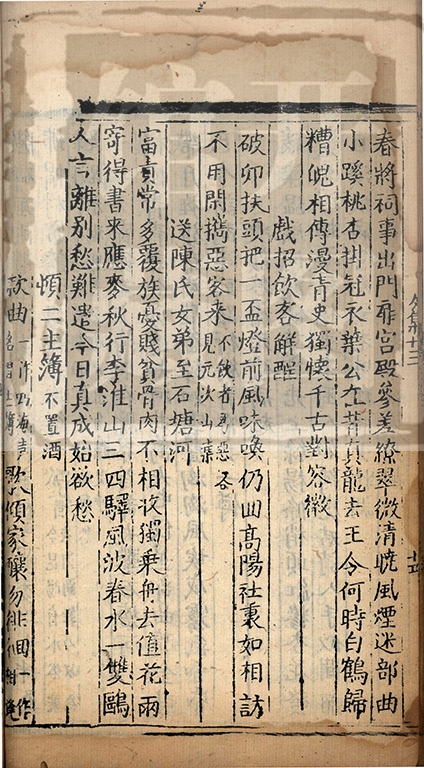 外集十三
春將祠事出門扉宮殿參差繚翠微清曉風煙迷部曲
小蹊桃杏掛冠衣葉公在昔真龍去王令何時白鶴歸
糟魄相傳漫青史獨懷千古對容徽
戲招飲客解酲
破卯扶頭把一盃燈前風味喚仍囬高陽社裏如相訪
不用閑攜惡客來不飲者爲惡客見元次山集
送陳氏女弟至石塘河
富貴常多覆族憂賤貧骨肉不相收獨乗舟去值花雨
寄得書來應麥秋行李淮山三四驛風波春水一雙鷗
人言離別愁難遣今日真成始欲愁
惱二主簿不置酒
曲一作主簿傾家釀勿徘徊一作